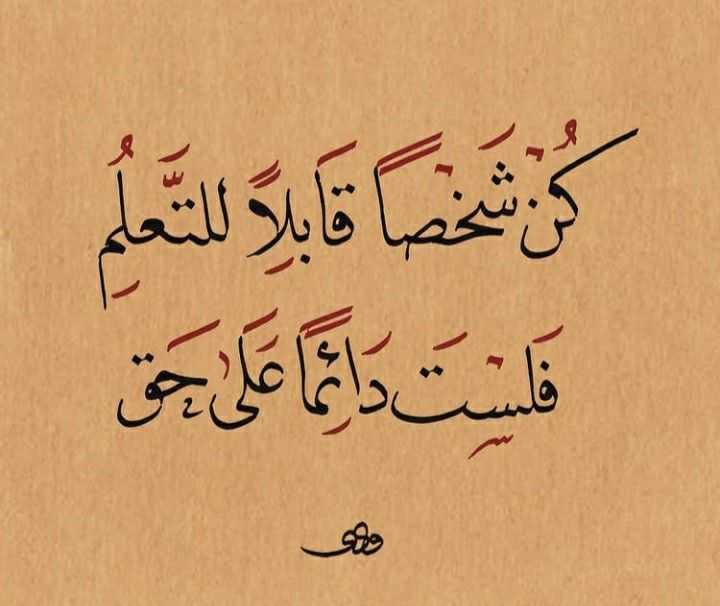 كُنْ شَخْصاً قَابِلاً للتَّعلُمِ
فَلسْتَ دَائِمًا عَلَىٰ حَق